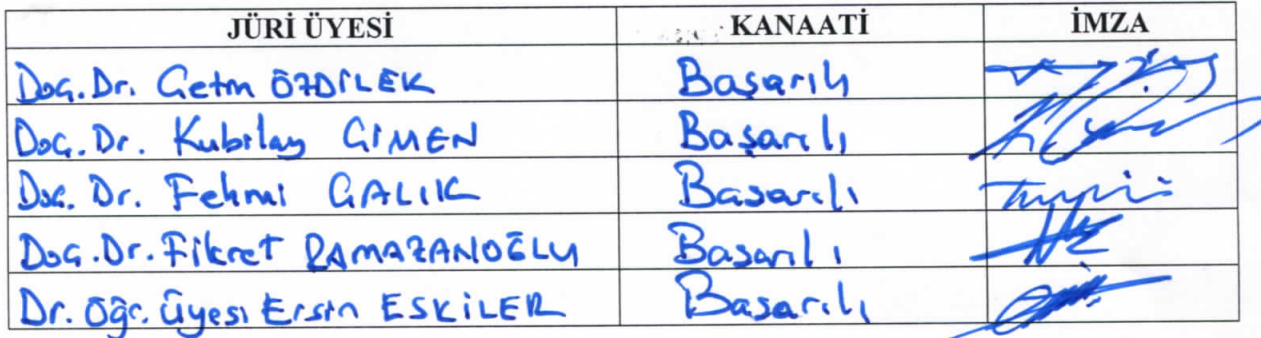 JÜRİ ÜYESİ KANAATİ İMZA
Doç. Dr. Çetin ÖZDİLEK Başarılı
Doç. Dr. Kubilay ÇİMEN Başarılı
Doç. Dr. Fehmi ÇALIK Başarılı
Doç. Dr. Fikret RAMAZANOĞLU Başarılı
Dr. Öğr. Üyesi Ersin ESKİLER Başarılı